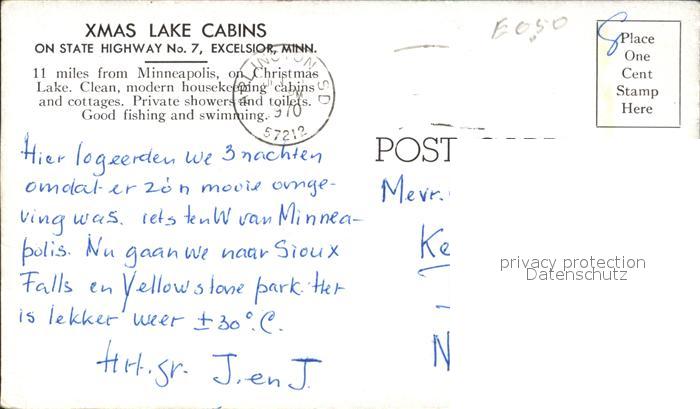 XMAS LAKE CABINS
ON STATE HIGHWAY No. 7, EXCELSIOR, MINN.
11 miles from Minneapolis, on Christmas
Lake. Clean, modern housekeeping cabins
and cottages. Private showers and toilets.
Good fishing and swimming.
ARLINGTON SD
PM
1970
57212
E0,50
Place
One
Cent
Stamp
Here
Hier logeerden we 3 nachten
omdat er zo'n mooie omge-
ving was. iets ten W van Minnea-
polis. Nu gaan we naar Sioux
Falls en Yellowstone park. Het
is lekker weer ± 30°. C.
Hrt. gr. J. en J.
POST
Mevr.
Ke
N
privacy protection
Datenschutz